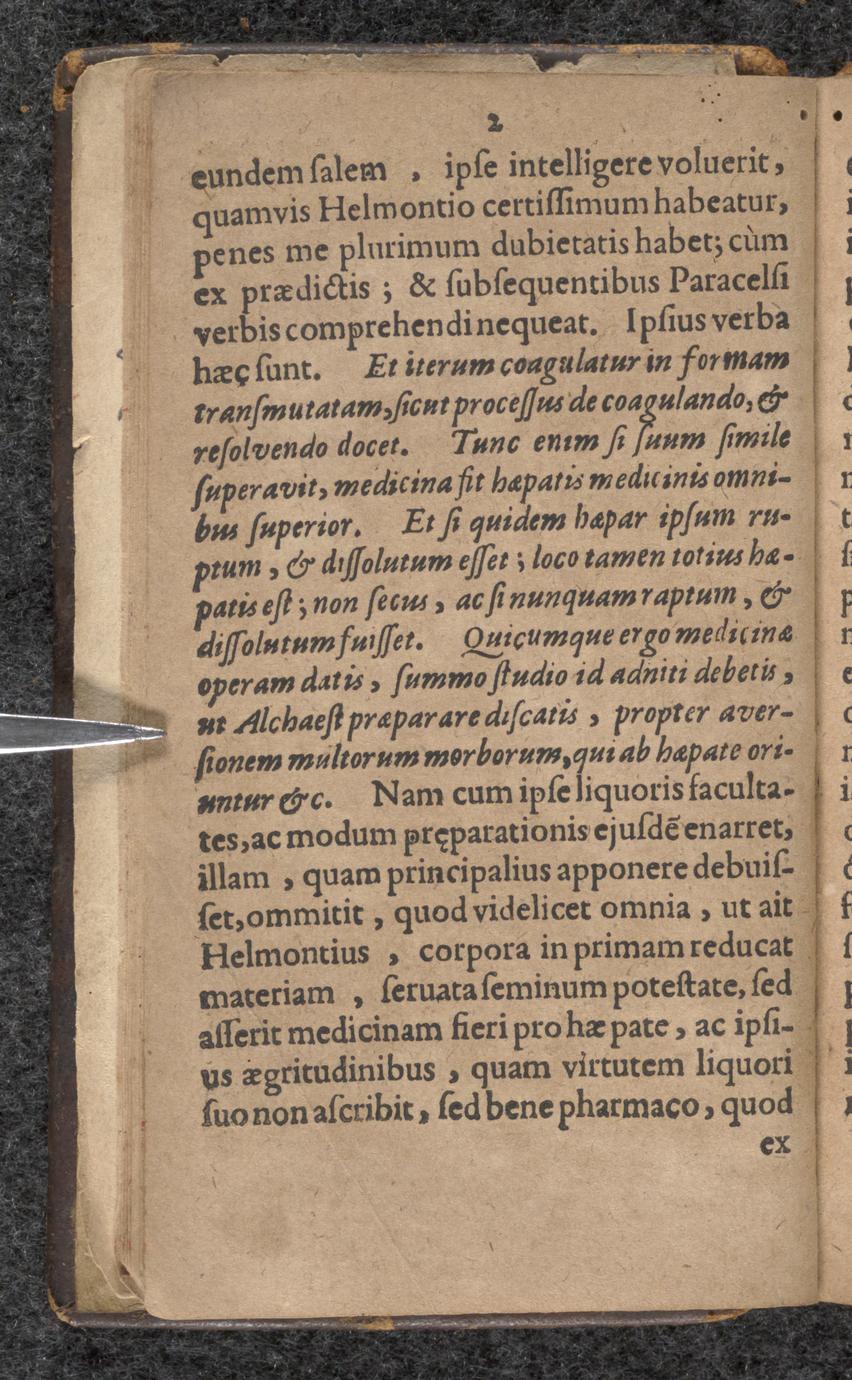 2
eundem ſalem , ipſe intelligere voluerit,
quamvis Helmontio certiſſimum habeatur,
penes me plurimum dubietatis habet; cùm
ex prædictis ; & ſubſequentibus Paracelſi
verbis comprehendi nequeat. Ipſius verba
hæç ſunt. Et iterum coagulatur in formam
tranſmutatam, ſicut proceſſus de coagulando, &
reſolvendo docet. Tunc enim ſi ſuum ſimile
ſuperavit, medicina fit hæpatis medicinis omni-
bus ſuperior. Et ſi quidem hæpar ipſum ru-
ptum , & diſſolutum eſſet ; loco tamen totius hæ-
patis eſt ; non ſecus , ac ſi nunquam raptum , &
diſſolutum fuiſſet. Quiçumque ergo medicinæ
operam datis , ſummo ſtudio id adniti debetis ,
ut Alchaeſt præparare diſcatis , propter aver-
ſionem multorum morborum, qui ab hæpate ori-
untur &c. Nam cum ipſe liquoris faculta-
tes, ac modum pręparationis ejuſdẽ enarret,
illam , quam principalius apponere debuiſ-
ſet, ommitit , quod videlicet omnia , ut ait
Helmontius , corpora in primam reducat
materiam , ſeruata ſeminum poteſtate, ſed
aſſerit medicinam fieri pro hæpate , ac ipſi-
us ægritudinibus , quam virtutem liquori
ſuo non aſcribit, ſed bene pharmaço, quod
ex